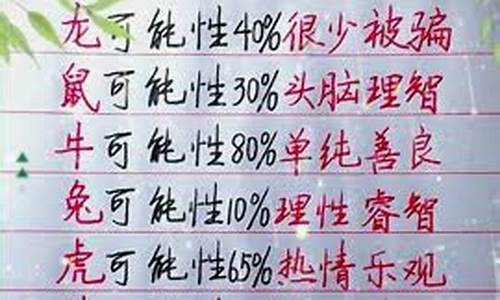 龙可能性40%很少被骗
鼠可能性30%头脑理智
牛可能性80%单纯善良
兔可能性10%理性睿智
虎可能性65%热情乐观